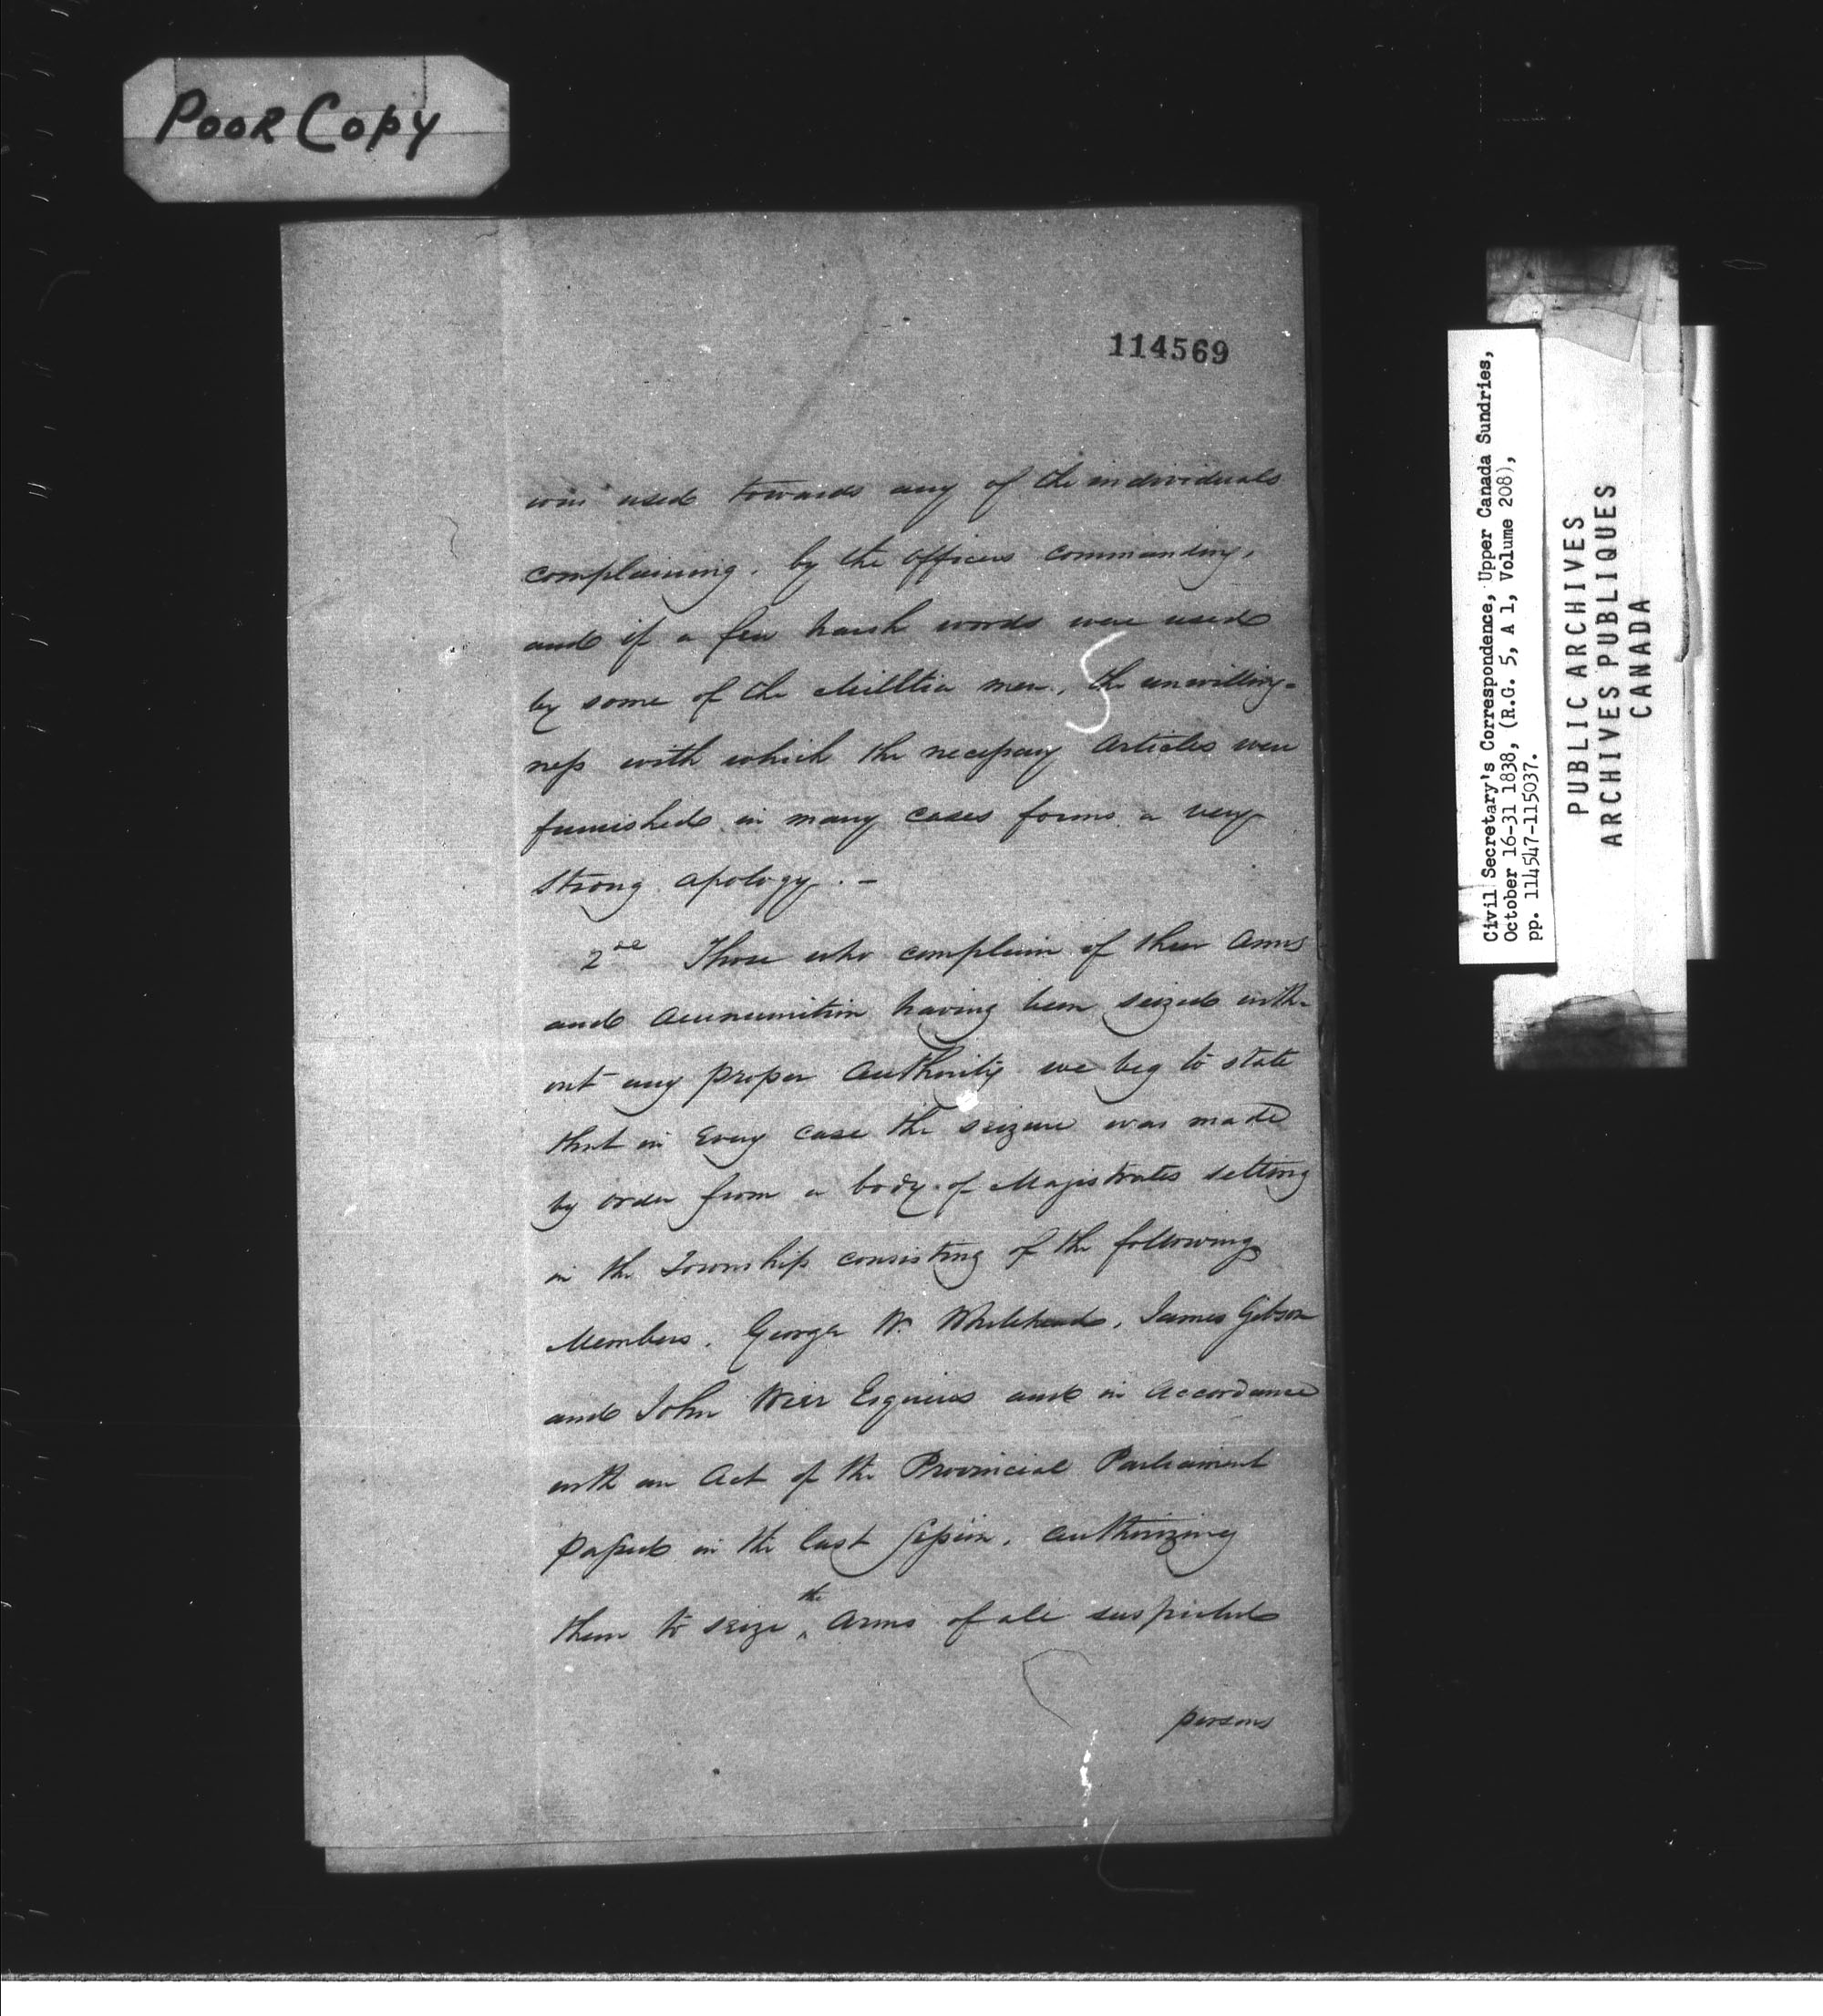 POOR COPY
114569
was used towards any of the individuals
complaining, by the officers commanding,
and if a few harsh words were used
by some of the Milltia men, the unwilling-
ness with which the necessary Articles were
furnished in many cases forms a very
strong apology. –
2nd Those who complain of their Arms
and Ammunition having been seized with-
out any proper Authority we beg to state
that in Every case the seizure was made
by order from a body of Magistrates setting
in the Township consisting of the following
Members. George W. Whitehead, James Gibson
and John Weir Esquires and in Accordance
with an Act of the Provincial Parliament
passed in the last Session, authorizing
them to seize ^the Arms of all suspected
persons
Civil Secretary's Correspondence, Upper Canada Sundries,
October 16-31 1838, (R.G. 5, A 1, Volume 208),
pp. 114547-115037.
PUBLIC ARCHIVES
ARCHIVES PUBLIQUES
CANADA